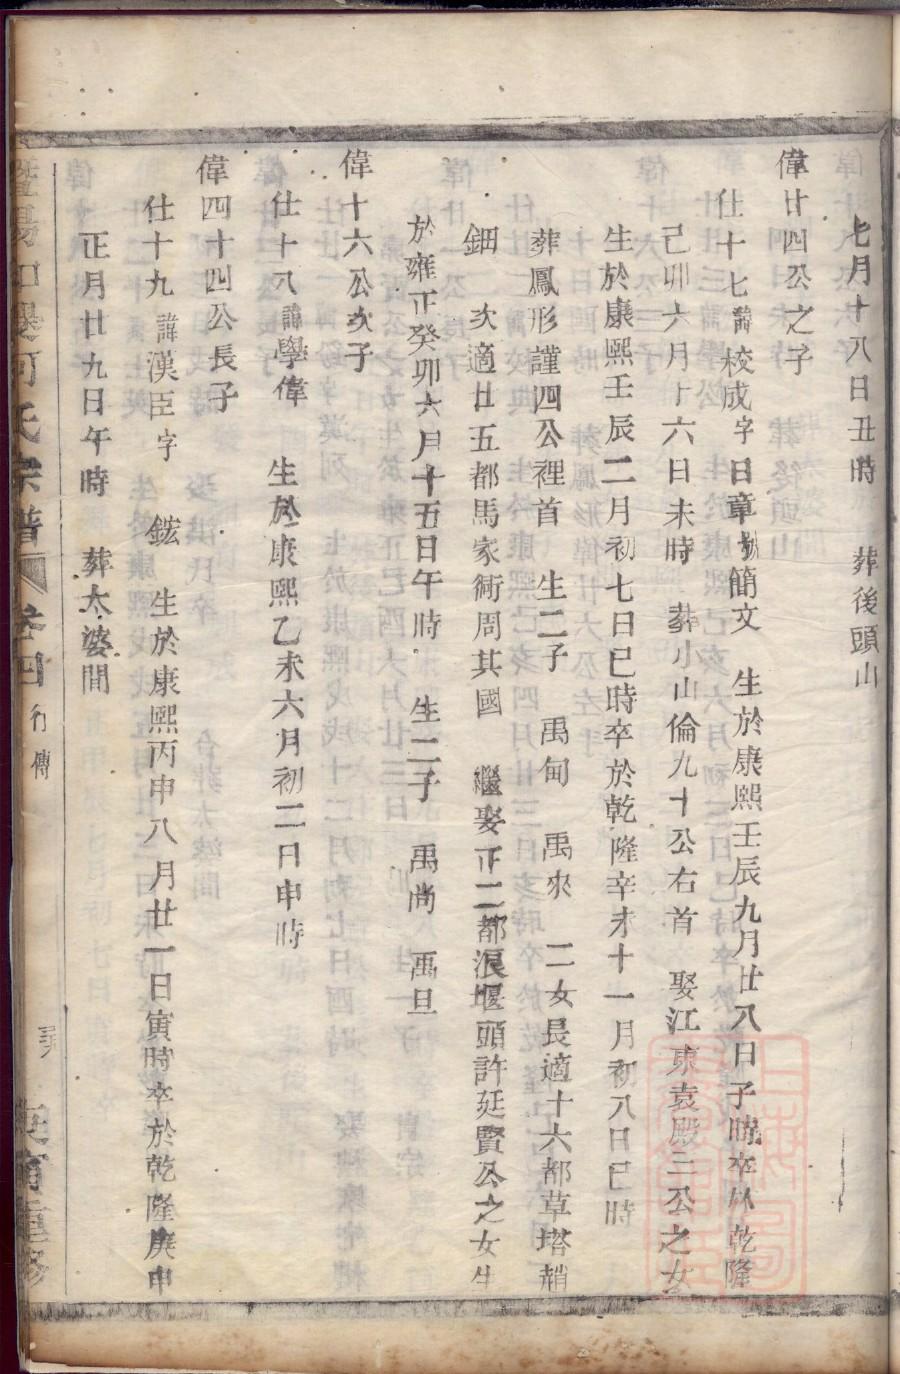 七月十八日丑時　葬後頭山
偉廿四公之子
仕十七諱校成字日章號簡文　生於康熙壬辰九月廿八日子時卒於乾隆
己卯六月十六日未時　葬小山倫九十公右首　娶江東袁殿三公之女
生於康熙壬辰二月初七日巳時卒於乾隆辛才十一月初八日巳時
葬鳳形謹四公裡首　生二子　禹甸　禹來　二女長適十六都草塔趙
鈿　次適廿五都馬家衕周其國　繼娶正二都浪堰頭許延賢公之女生
於雍正癸卯六月十五日午時　生二子　禹尚　禹旦
偉十六公次子
仕十八諱學偉　生於康熙乙未六月初二日申時
偉四十四公長子
仕十九諱漢臣字　鋐　生於康熙丙申八月廿一日寅時卒於乾隆庚申
正月廿九日午時　葬太婆間
何氏宗譜　卷四　行傳
重修